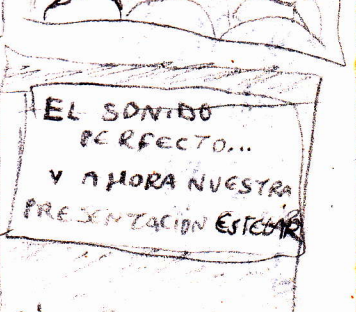 EL SONIDO
PERFECTO...
Y AHORA NUESTRA
PRESENTACIÓN ESTELAR